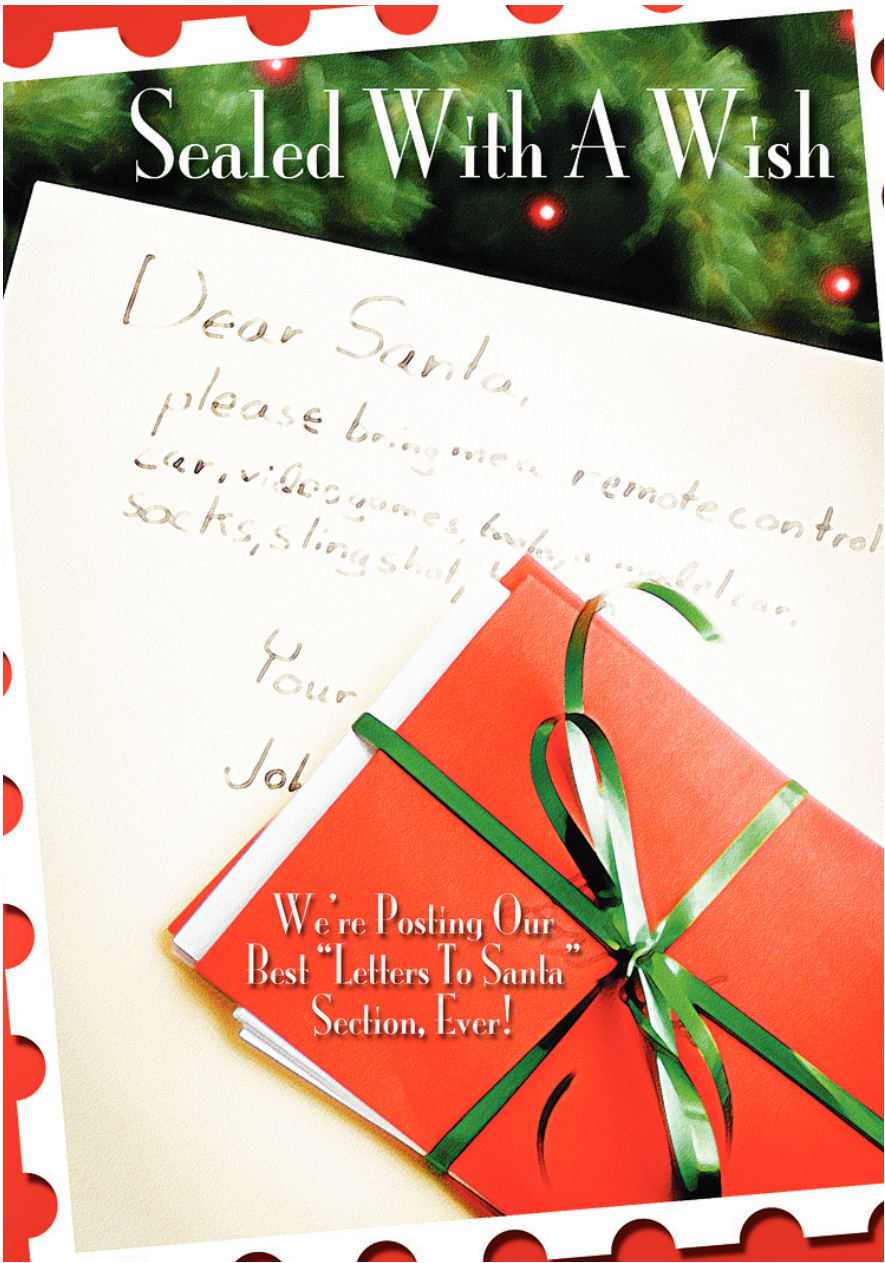 Sealed With A Wish
Dear Santa,
please bring me a remote control
car, videogames, books, a model car,
socks, slingshot,
Your
Joh
We're Posting Our
Best “Letters To Santa”
Section, Ever!